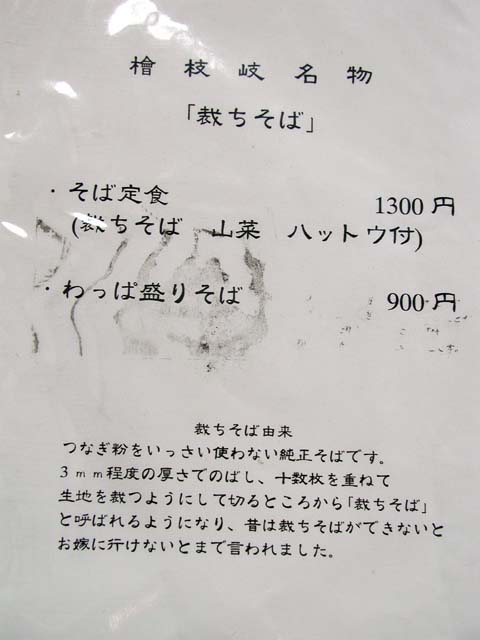 檜枝岐名物
「裁ちそば」
・そば定食 1300円
(裁ちそば 山菜 ハットウ付)
・わっぱ盛りそば 900円
裁ちそば由来
つなぎ粉をいっさい使わない純正そばです。
3mm程度の厚さでのばし、十数枚を重ねて
生地を裁つようにして切るところから「裁ちそば」
と呼ばれるようになり、昔は裁ちそばができないと
お嫁に行けないとまで言われました。